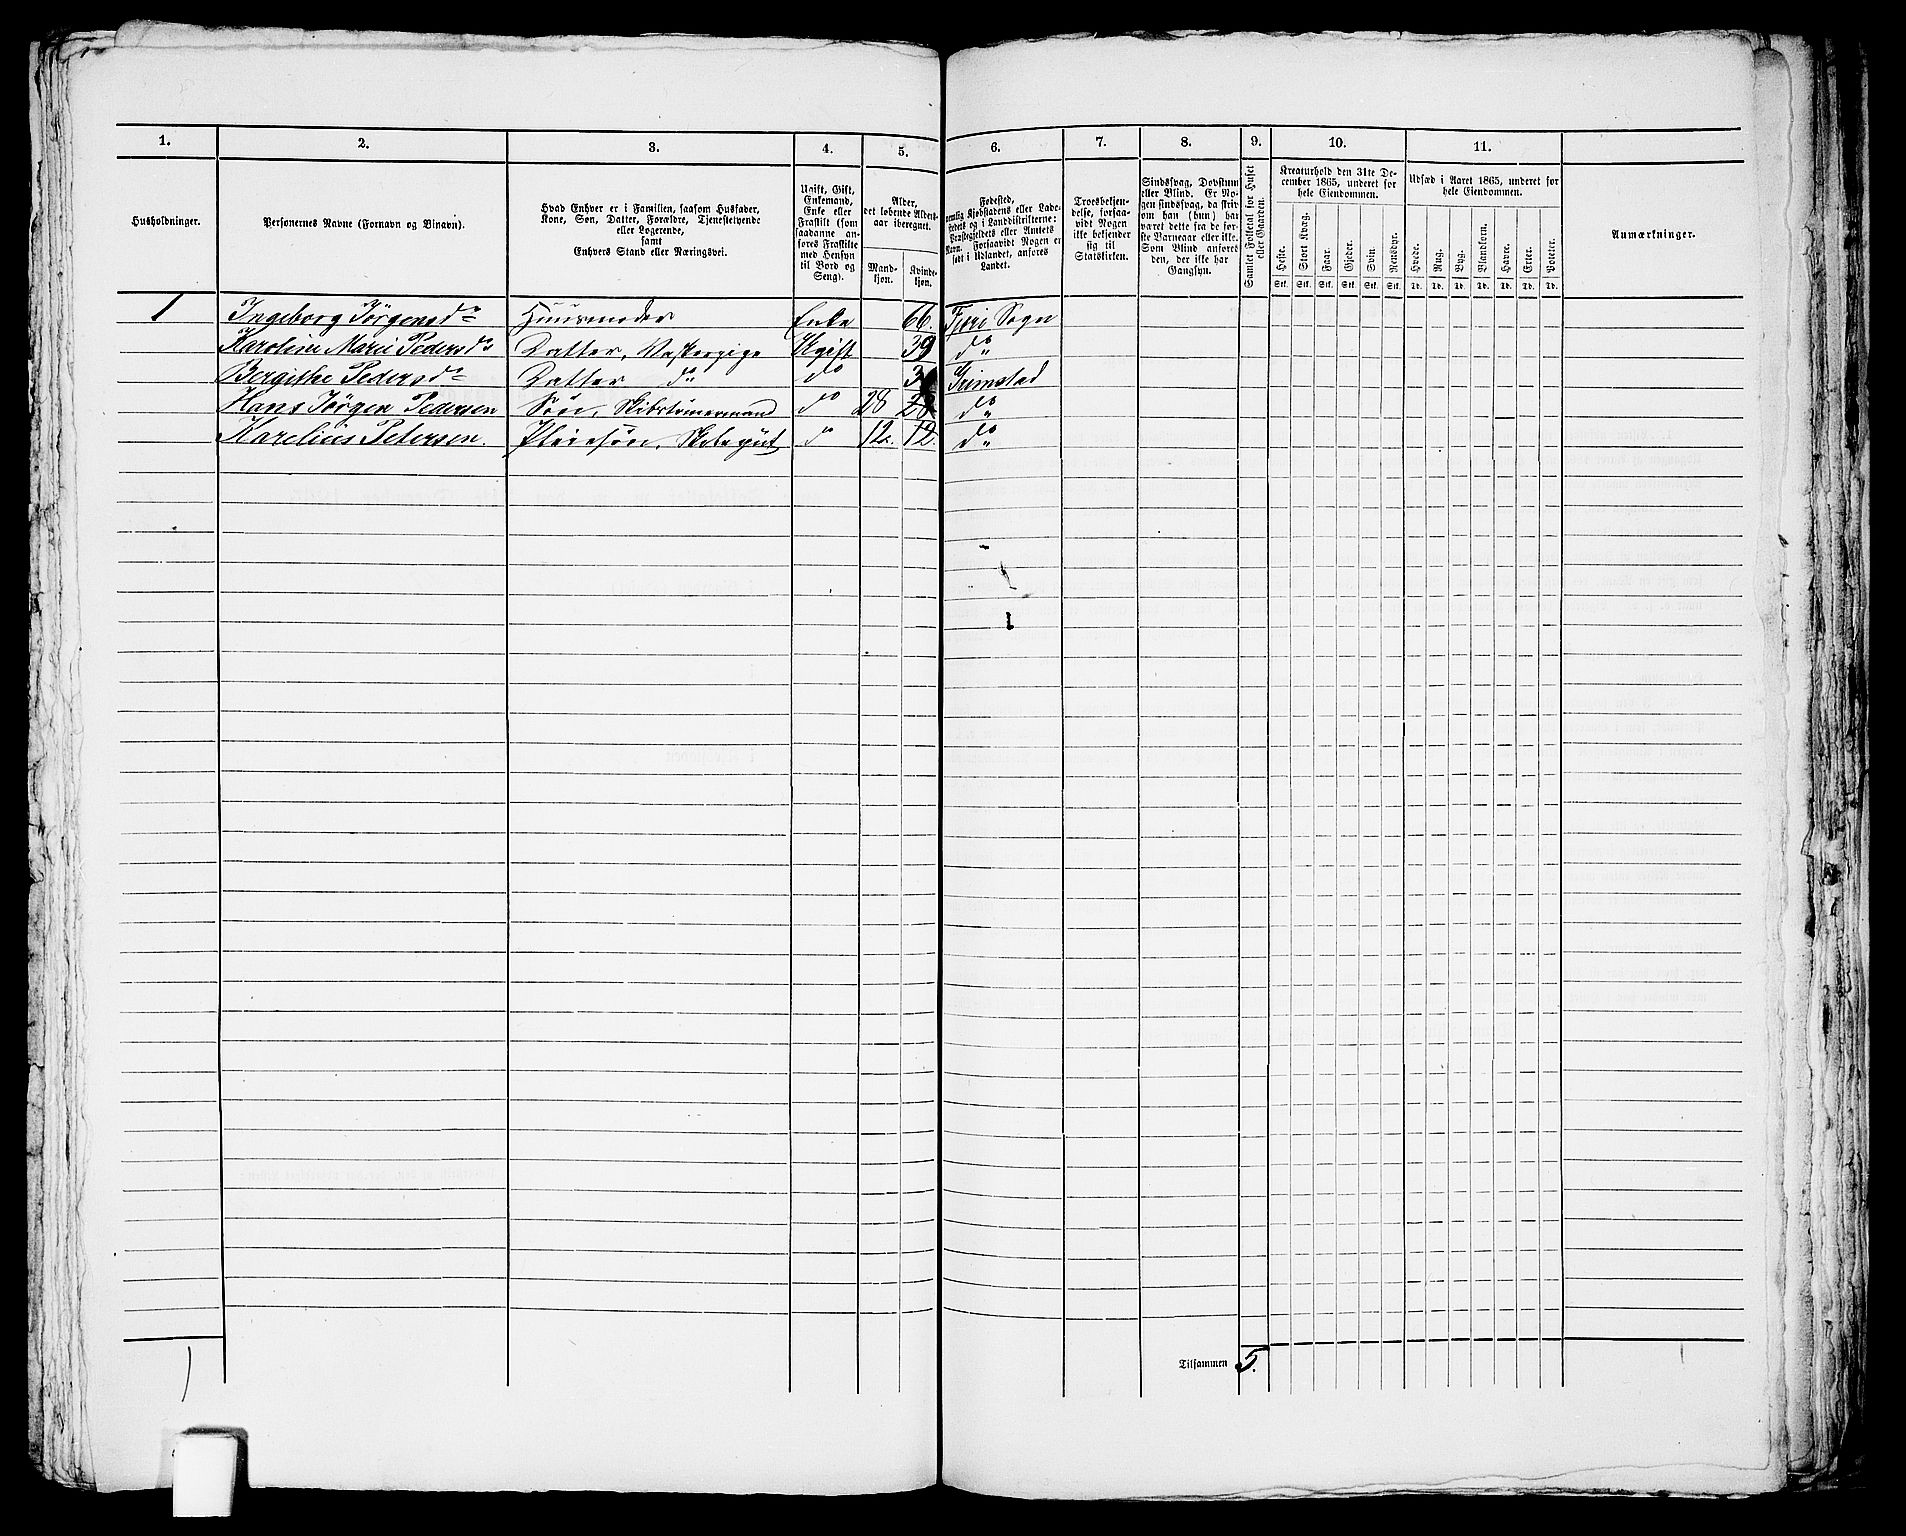 1. 2. 3. 4. 5. 6. 7. 8. 9. 10. 11.
Husholdninger.
Personernes Navne (Fornavn og Binavn).
Hvad Enhver er i Familien, saasom Husfader,
Kone, Søn, Datter, Forældre, Tjenestetyende
eller Logerende,
samt
Enhvers Stand eller Næringsvei.
Ugift, Gift,
Enkemand,
Enke eller
Fraskilt (som
saadanne an-
føres Fraskilte
med Hensyn
til Bord og
Seng).
Alder,
det løbende Alders-
aar iberegnet.
Mand-
kjøn.
Kvinde-
kjøn.
Fødested,
nemlig Kjøbstadens eller Lade-
stedets og i Landdistrikterne:
Præstegjeldets eller Amtets
Navn. Forsaavidt Nogen er
født i Udlandet, anføres
Landet.
Troesbekjen-
delse, forsaa-
vidt Nogen
ikke bekjender
sig til
Statskirken.
Sindssvag, Døvstum
eller Blind. Er No-
gen sindssvag, da skri-
ves om han (hun) har
været dette fra de før-
ste Barneaar eller ikke.
Som Blind anføres
den, der ikke har
Gangsyn.
Samlet Folketal for Huset
eller Gaarden.
Kreaturhold den 31te De-
cember 1865, underet for
hele Eiendommen.
Heste. Stort Kvæg. Faar. Gjeder. Svin. Rensdyr.
Stk. Stk. Stk. Stk. Stk. Stk.
Udsæd i Aaret 1865, underet for
hele Eiendommen.
Hvede. Rug. Byg. Blandkorn. Havre. Erter. Poteter.
Td. Td. Td. Td. Td. Td. Td.
Anmærkninger.
1 Ingeborg Jörgensd. Huusmoder Enke 66. Fjæri Sogn
Karoline Marie Pedersd. Datter, Vaskerpige Ugift 39 do
Bergithe Pedersd. Datter do do Grimstad
Hans Jörgen Pedersen Sön, Skibstömermand do 28 28 do
Karelius Petersen. Pleiesön, Skibsgut do 12. 12. do
Tilsammen 5.